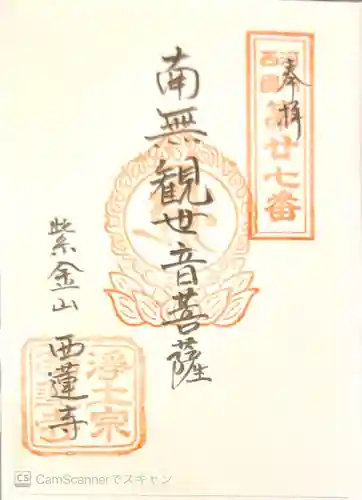 奉拝
廿七番
南無観世音菩薩
紫金山
西蓮寺
浄土宗
CS CamScannerでスキャン